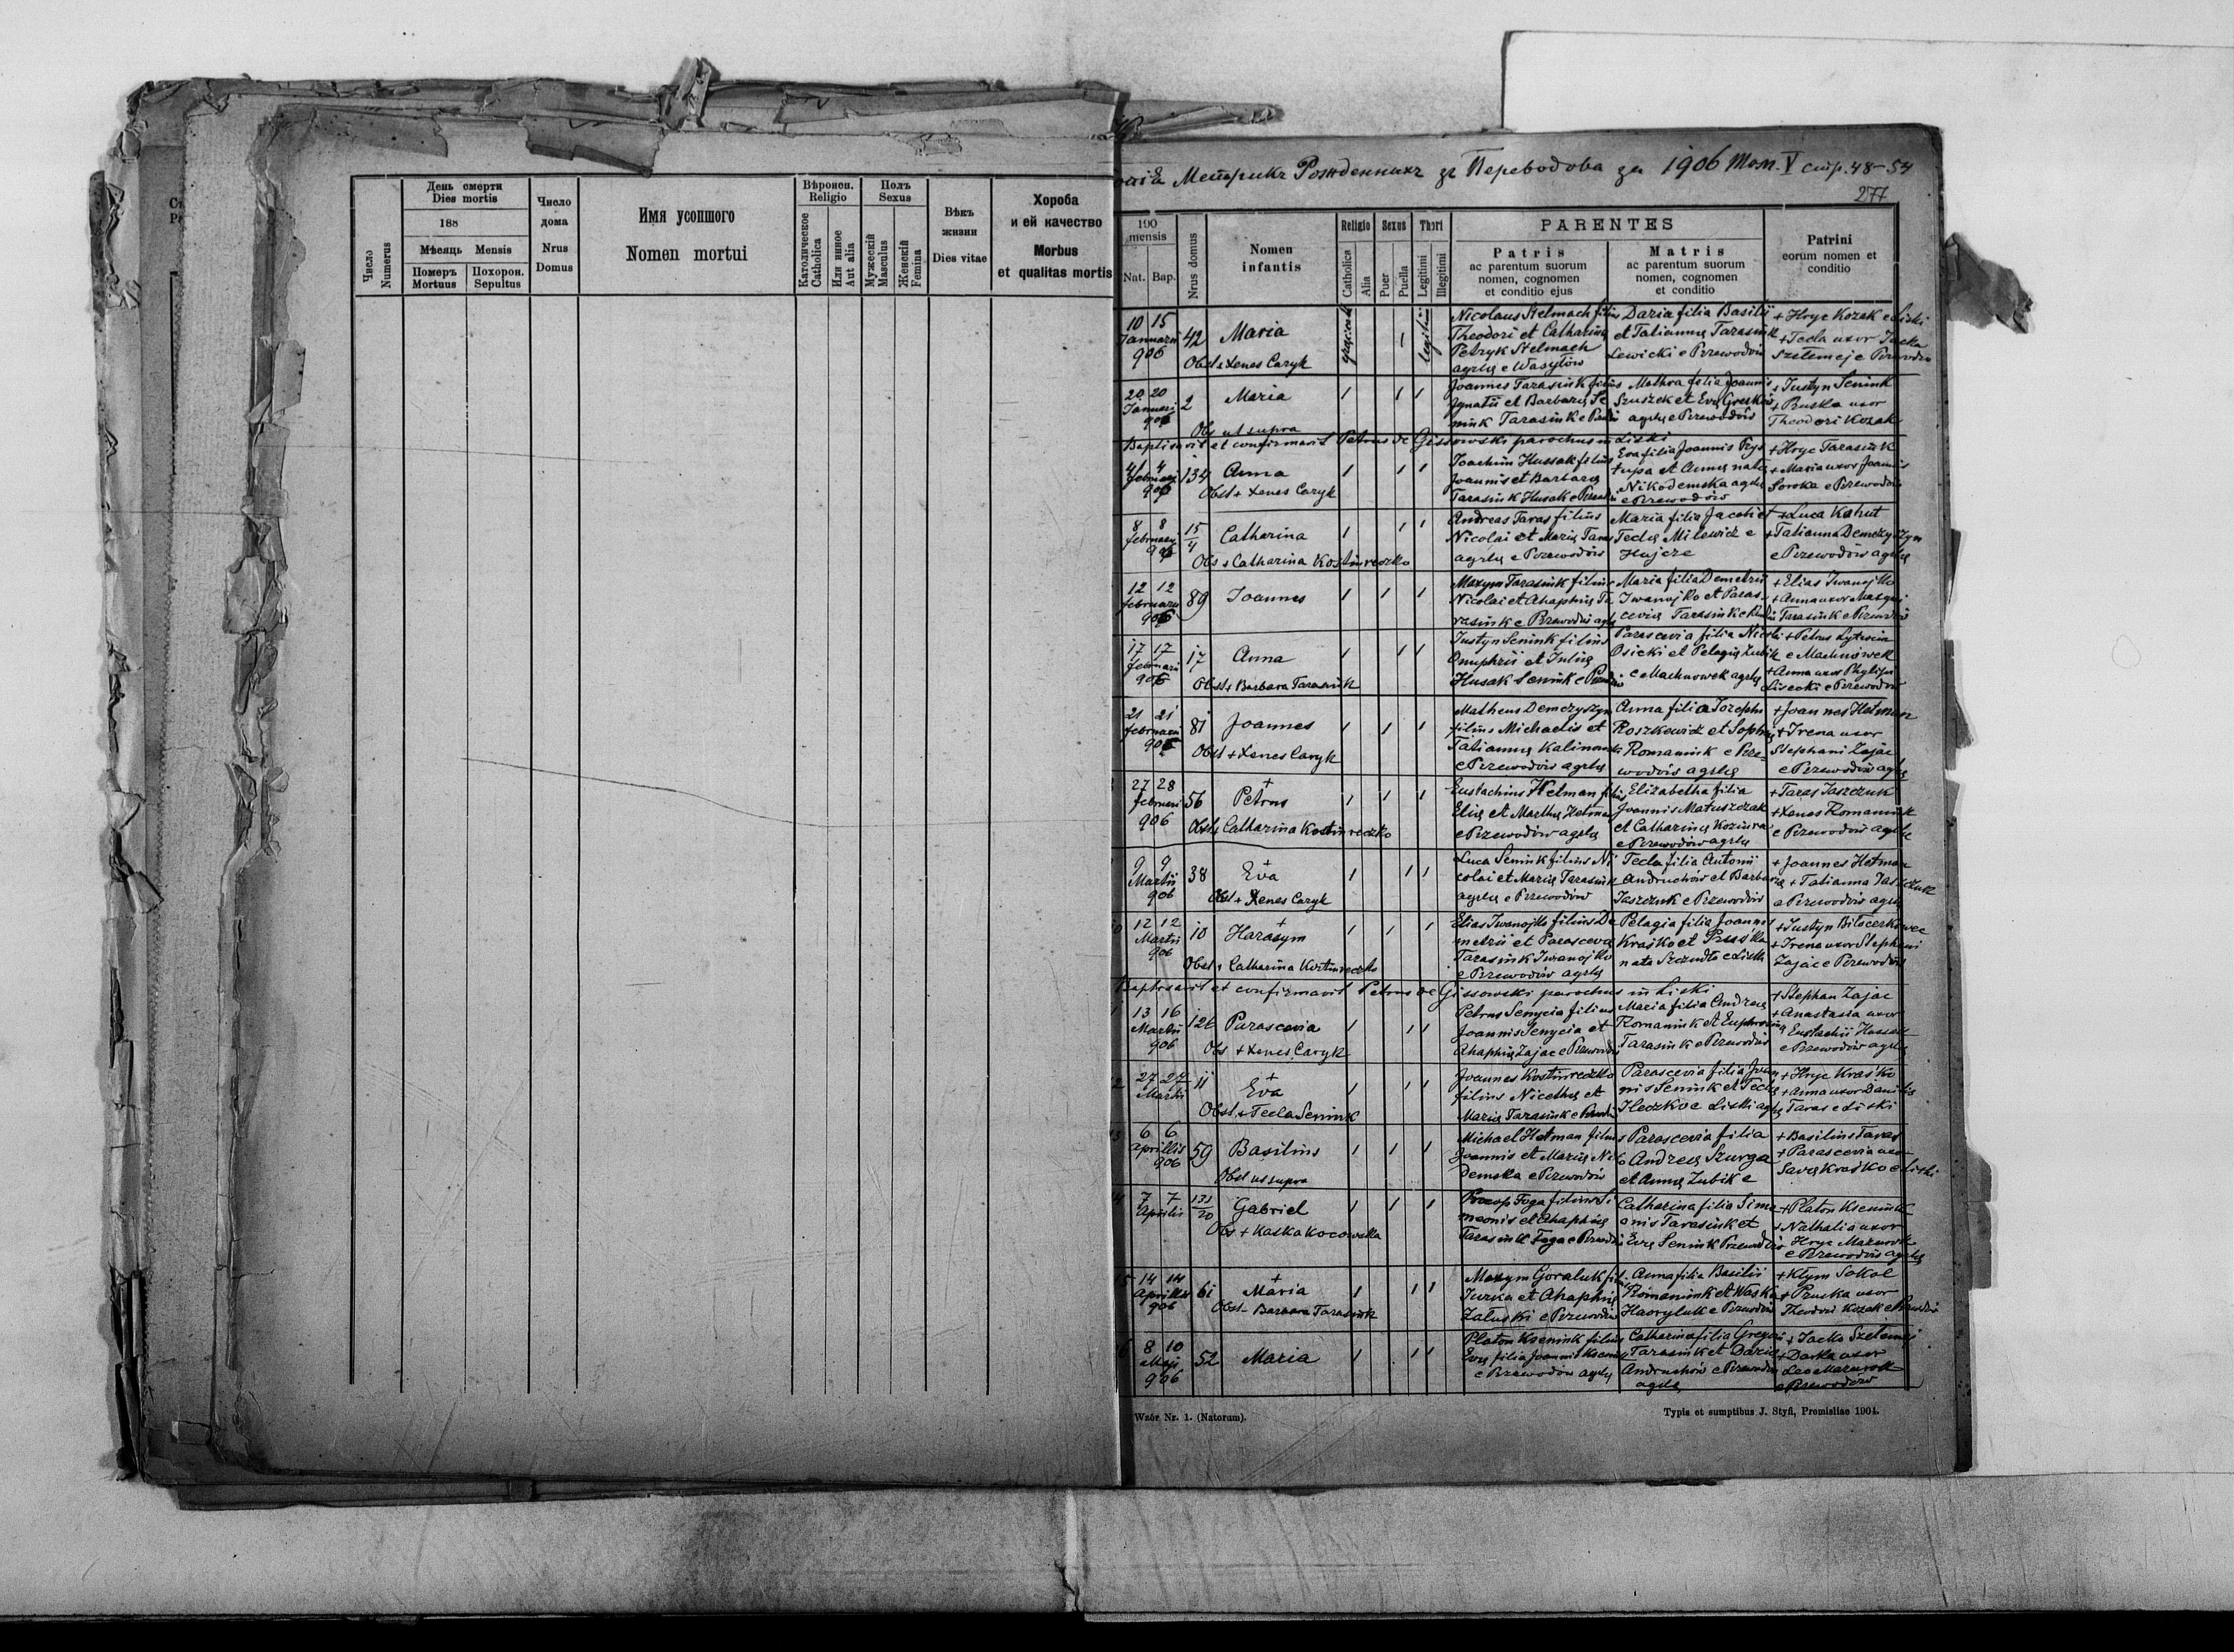 День смерти
Dies mortis
188
Мѣсяць Mensis
Число
Numerus
Померъ
Mortuus
Похорон.
Sepultus
Число
дома
Nrus
Domus
Имя усопшого
Nomen mortui
Вѣроисп.
Religio
Католическое
Catholica
Или инное
Aut alia
Полъ
Sexus
Мужескій
Masculus
Женскій
Femina
Вѣкъ
жизни
Dies vitae
Хороба
и ей качество
Morbus
et qualitas mortis
Метрикъ Рожденныхъ зъ Переводова за 1906 Том. V стр. 48-54
277
190
mensis
Nat. Bap.
Nrus domus
Nomen
infantis
Religio
Catholica
Alia
Sexus
Puer
Puella
Thori
Legitimi
Illegitimi
PARENTES
Patris
ac parentum suorum
nomen, cognomen
et conditio ejus
Matris
ac parentum suorum
nomen, cognomen
et conditio
Patrini
eorum nomen et
conditio
10 15
Januarii
906
42
Maria
Obst + Xenes Caryk
Nicolaus Stelmach filius
Theodori et Catharina
Petryk Stelmach
agrlę e Wasylów
Daria filia Basilii
et Tatiannę Tarasiuk
Lewicki e Przewodów
+ Hryc Kozak e Liski
+ Tecla uxor Jacka
Szeremej e Przewodów
20 20
Januari
906
2
Maria
Obs ut supra
Joannes Tarasiuk filius
Ignatii et Barbarę Se
niuk Tarasiuk e
Joannis
Szuszek et Evę
agrlę e Przewodów
+ Justyn Seniuk
+ Pruska uxor
Theodori Kozak
Baptisavit et confirmavit Petrus de Gissowski parochus in Liski
4 4
februarii
906
134
Anna
Obst + Xenes Caryk
Joachim Hussak filius
Joannis et Barbarę
Tarasiuk Husak e
Eva filia Joannis Prys
tupa et Annę nata
Nikodemska agrlę
e Przewodów
+ Hryc Tarasiuk
+ Maria uxor Joannis
Soroka e Przewodów
8 8
februarii
906
15/4
Catharina
Obs + Catharina Kostiureczko
Andreas Taras filius
Nicolai et Marię Taras
agrlę e Przewodów
Maria filia Jacobi et
Teclę Milewicz e
Hujcze
+ Luca Kohut
+ Tatianna Demczyszyn
e Przewodów agrlę
12 12
februarii
906
89
Joannes
Maxym Tarasiuk filius
Nicolai et Ahaphię Ta
rasiuk e Przewodów agrlę
Maria filia Demetrii
Iwanojko et Paras
cevię Tarasiuk e
+ Elias Iwanojko
+ Anna uxor
Tarasiuk e Przewodów
17 17
februarii
906
17
Anna
Obst + Barbara Tarasiuk
Justyn Seniuk filius
Onuphrii et Julię
Husak Seniuk e
Parascevia filia Nicolai
Osicki et Pelagię Zubik
e Machnowek agrlę
+ Petrus
e Machnówek
+ Anna uxor Phylipi
Lisecki e Przewodów
21 21
februarii
906
81
Joannes
Obst + Xenes Caryk
Matheus Demczyszyn
filius Michaelis et
Tatiannę
e Przewodów agrlę
Anna filia Josephi
Roszkewicz et Sophię
Romaniuk e Prze-
wodów agrlę
+ Joannes Hetman
+ Irena uxor
Stephani Zajac
e Przewodów agrlę
27 28
februari
906
56
+
Petrus
Obst + Catharina Kostiureczko
Eustachius Hetman filius
Elię et Marthę Hetman
e Przewodów agrlę
Elizabetha filia
Joannis Matuszczak
et Catharinę Koziura
e Przewodów agrlę
+ Taras Jaszczuk
+ Xenes Romaniuk
e Przewodów agrlę
9 9
Martii
906
38
+
Eva
Obst + Xenes Caryk
Luca Seniuk filius Ni
colai et Marię Tarasiuk
agrlę e Przewodów
Tecla filia Antonii
Andruchów et Barbarę
Jaszczuk e Przewodów
+ Joannes Hetman
+ Tatianna Jaszczuk
e Przewodów agrlę
12 12
Martii
906
10
+
Harasym
Obst + Catharina Kostiureczko
Elias Iwanojko filius De
metrii et Parascevę
Tarasiuk Iwanojko
e Przewodów agrlę
Pelagia filia Joannis
Kraśko et Pruśka
nata e Liski
+ Justyn Biłocerkowec
+ Irena uxor Stephani
Zajac e Przewodów
Baptisavit et confirmavit Petrus de Gissowski parochus in Liski
13 16
Martii
906
126
Parascevia
Obs + Xenes Caryk
Petrus Senycia filius
Joannis Senycia et
Ahaphię Zajac e Przewodów
Maria filia Andreę
Romaniuk et Euphrosinę
Tarasiuk e Przewodów
+ Stephan Zajac
+ Anastasia uxor
Eustachii Hussak
e Przewodów agrlę
27 27
Martii
11
+
Eva
Obst. + Tecla Seniuk
Joannes Kostiureczko
filius Nicethę et
Marię Tarasiuk e
Parascevia filia Joan
nis Seniuk et Teclę
Heczko e Liski agrlę
+ Hryc Kraśko
+ Anna uxor Danilis
Taras e Liski
6 6
Aprillis
906
59
Basilius
Obst ut supra
Michael Hetman filius
Joannis et Marię Niko
demska e Przewodów
Parascevia filia
Andreę Szurga
et Annę Zubik e
+ Basilius Taras
+ Parascevia uxor
Savę Kraśko e Liski
7 7
Aprilis
131/20
Gabriel
Obs + Kaśka Kocowska
Procop Foga filius Si
meonis et Ahaphię
Tarasiuk Foga e
Catharina filia Sime
onis Tarasiuk et
Evę Seniuk Przewodów
+ Platon Kseniuk
+ Nathalia uxor
Hryc Mazurok
e Przewodów agrlę
14 14
Aprillis
906
61
+
Maria
Obst - Barbara Tarasiuk
Maxym Goraluk fil.
Jurka et Ahaphię
Załuski e Przewodów
Anna filia Basilii
Romaniuk et Waśka
Hawryluk e Przewodów
+ Klym Sokol
+ Pruska uxor
Theodori Kozak e
8 10
Maji
906
52
Maria
Platon Kseniuk filius
Evę filia Joannis Kseniuk
e Przewodów agrlę
Catharina filia Gregorii
Tarasiuk et Darię
Andruchów e Przewodów
agrlę
+ Jacko Szeremej
+ Darka uxor
Leo Mazurok
e Przewodów
Wzór Nr. 1. (Natorum).
Typis et sumptibus J. Styfi, Premisliae 1904.